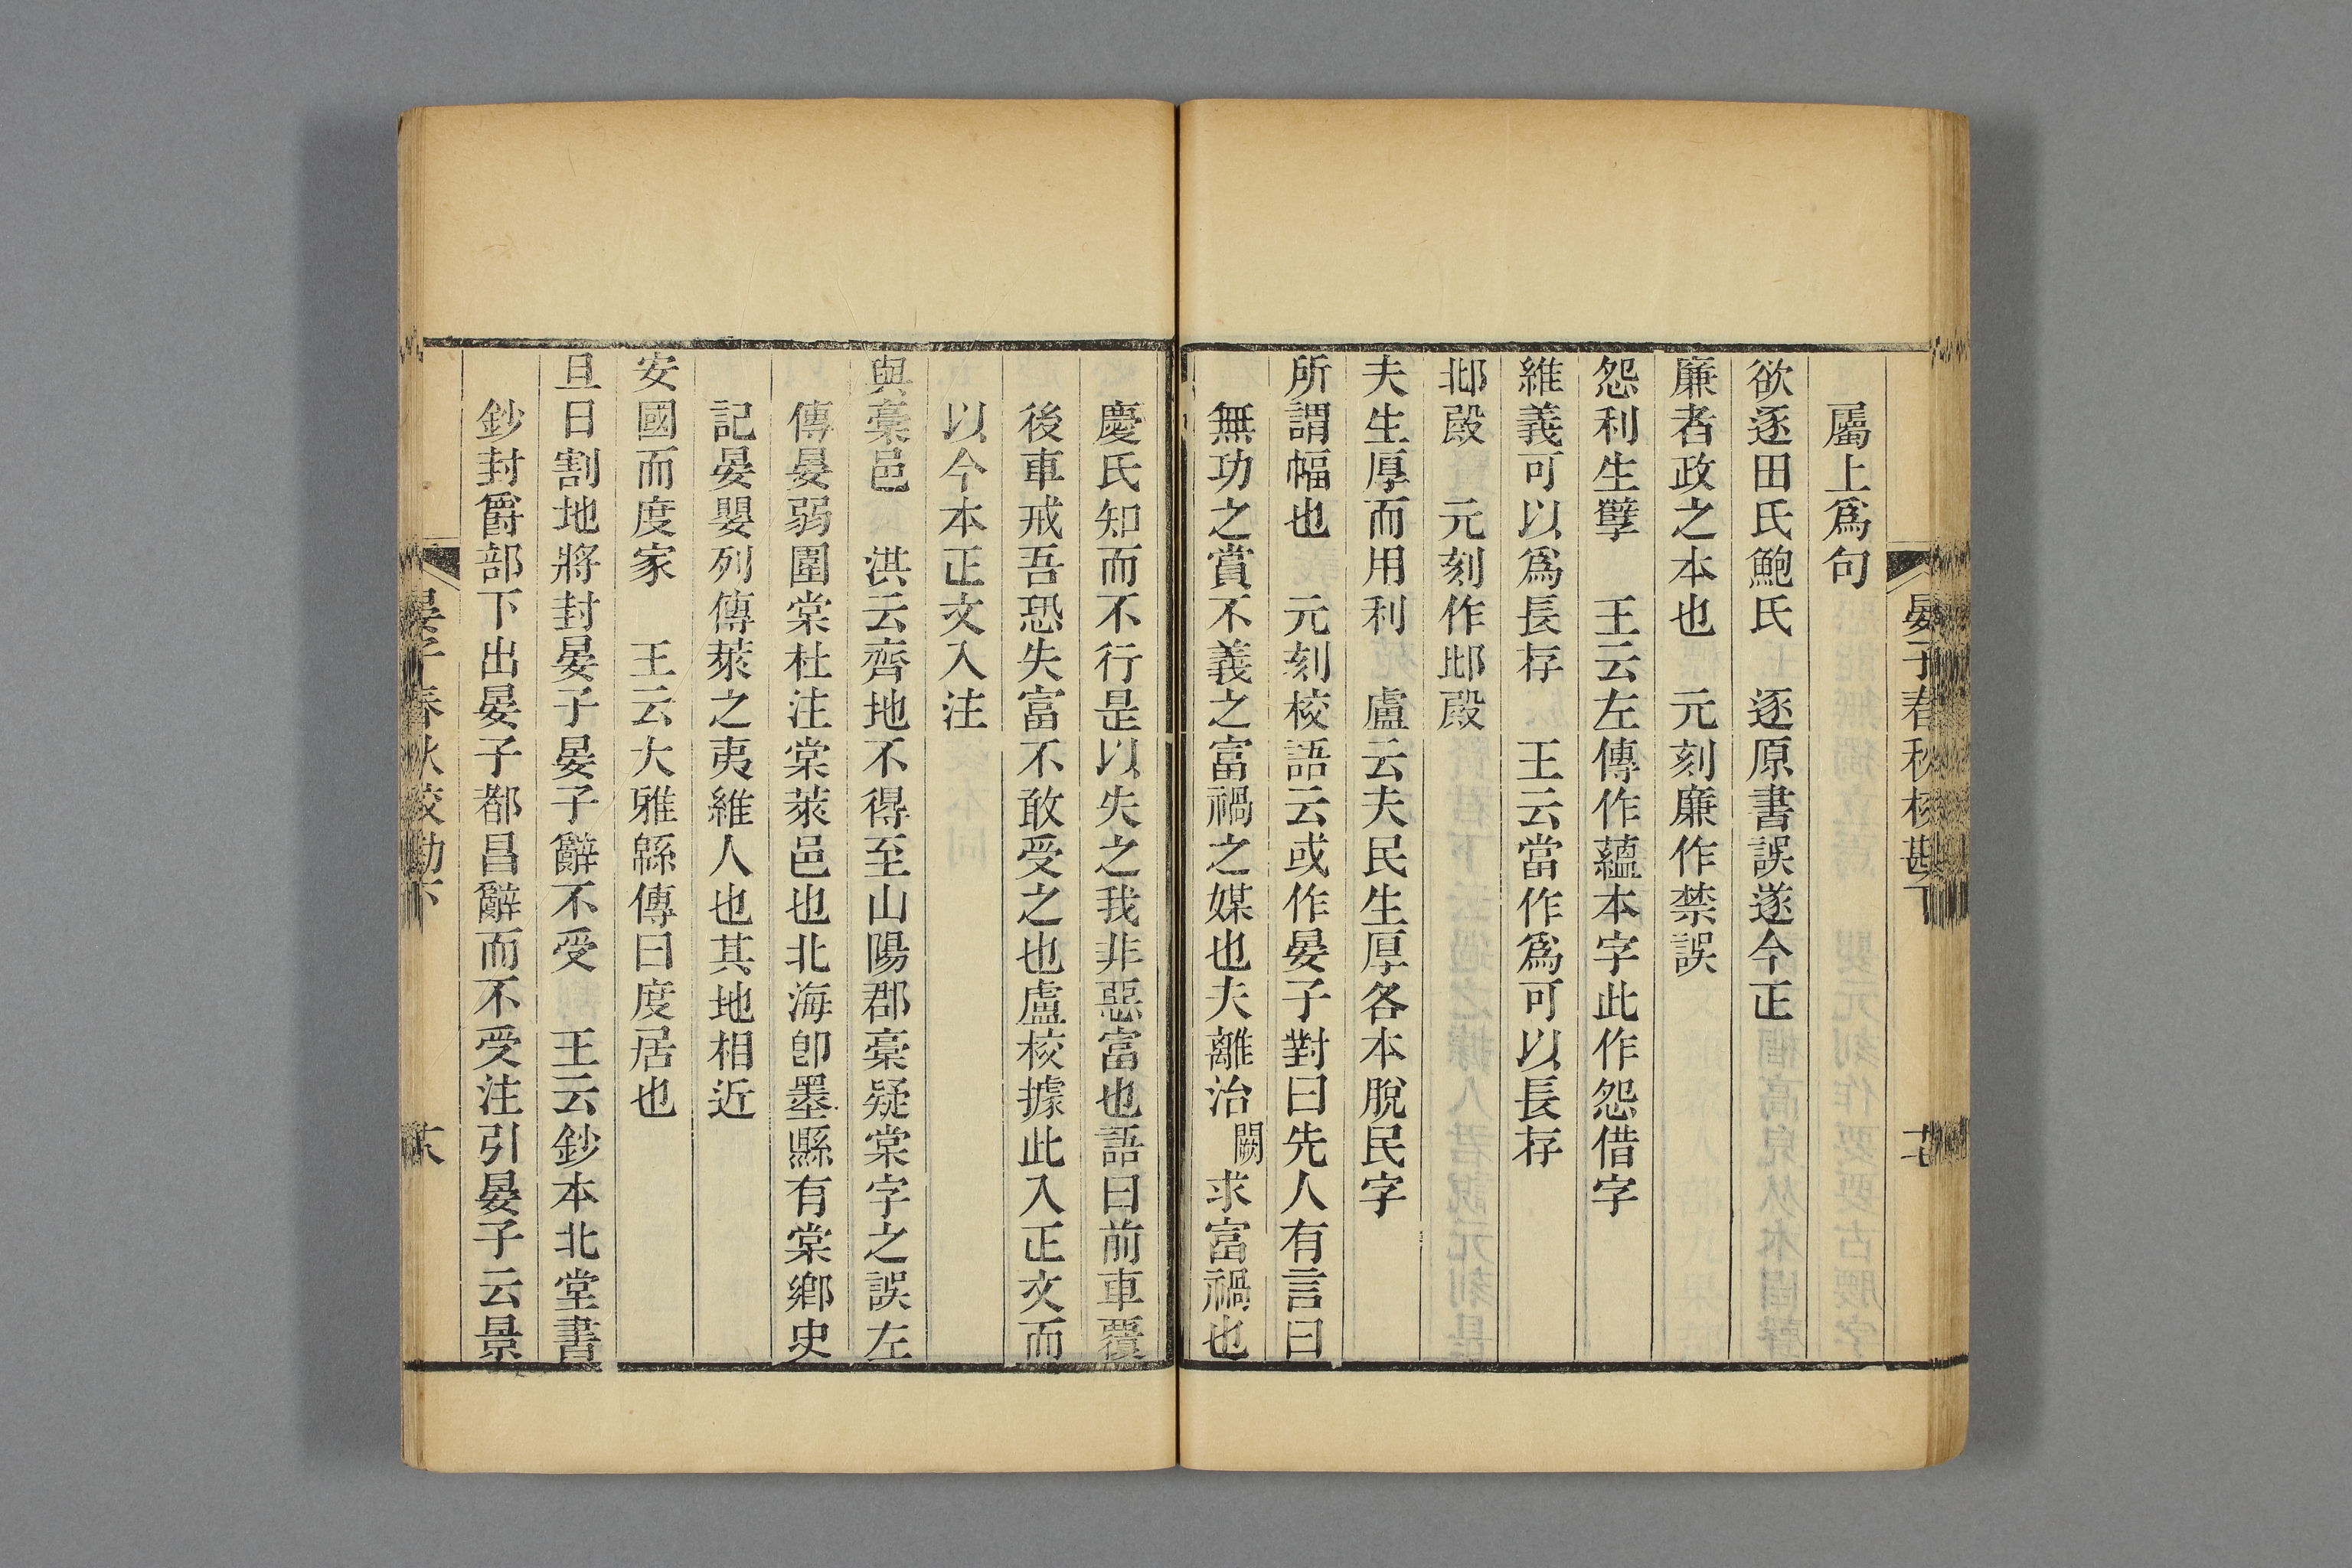 晏子春秋校勘下
屬上爲句
欲逐田氏鮑氏　逐原書誤遂今正
廉者政之本也　元刻廉作禁誤
怨利生孽　王云左傳作蘊本字此作怨借字
維義可以爲長存　王云當作爲可以長存
邶殿　元刻作邶殿
夫生厚而用利　盧云夫民生厚各本脫民字
所謂幅也　元刻校語云或作晏子對曰先人有言曰
無功之賞不義之富禍之媒也夫離治闕求富禍也
慶氏知而不行是以失之我非惡富也語曰前車覆
後車戒吾恐失富不敢受之也盧校據此入正文而
以今本正文入注
與槀邑　洪云齊地不得至山陽郡槀疑棠字之誤左
傳晏弱圍棠杜注棠萊邑也北海卽墨縣有棠鄉史
記晏嬰列傳萊之夷維人也其地相近
安國而度家　王云大雅緜傳曰度居也
旦日割地將封晏子晏子辭不受　王云鈔本北堂書
鈔封爵部下出晏子都昌辭而不受注引晏子云景
晏子春秋校勘下